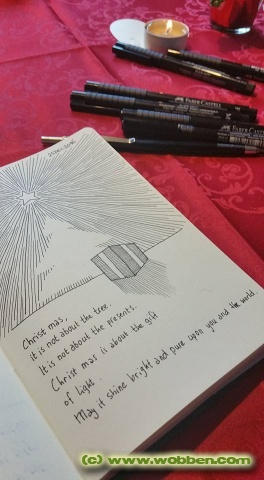 FABER CASTELL
FABER-CASTELL
Christmas,
it is not about the tree.
It is not about the presents.
Christmas is about the gift
of light.
May it shine bright and pure upon you and the world.
(c) www.wobben.com